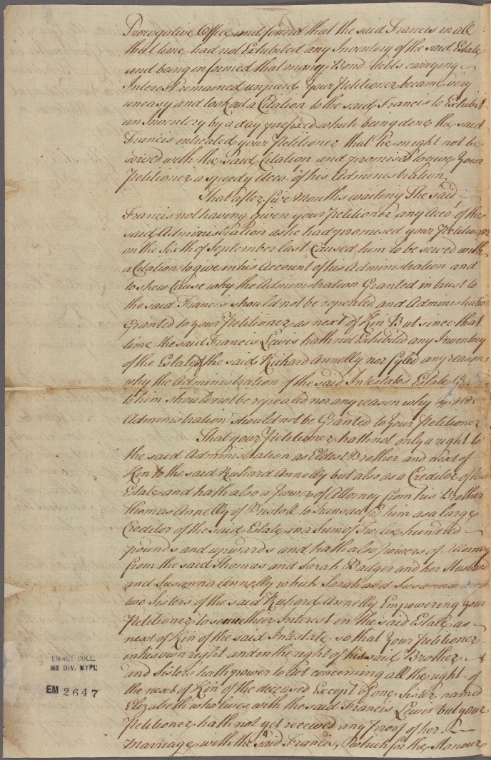 Prerogative Office and found that the said Frances in all
that time had not Exhibited any Inventory of the said Estate
and being informed that many Bond Debts carrying
Interest remained unpaid Your Petitioner became very
uneasy and took out a Citation to the said Francis to Exhibit
an Inventory by a day prefixed which being done the said
Francis intreated your Petitioner that he might not be
served with the said Citation and promised to give Your
Petitioner a speedy Acco.t of his Administration
That after five Months waiting The said
Francis not having given your Petitioner any Acco.t of his
said Administration as he had promised your Petitioner
on the Sixth of September last Caused him to be served with
a Citation to give in his Account of his Administration and
to shew Cause why the Administration Granted in trust to
the said Francis should not be repealed and Administration
Granted to your Petitioner as next of Kin But since that
time the said Francis Lewis hath not Exhibited any Inventory
of the Estate of the said Richard Annelly nor fyled any reason
why the Administration of the said Intestates Estate
to him should not be repealed nor any reason why
Administration should not be Granted to Your Petitioner
That your Petitioner hath not only a right to
the said Administration as Eldest Brother and next of
Kin to the said Richard Annelly but also as a Creditor of his
Estate and hath also a Power of Attorney from his Brother
Thomas Annelly of Bristol to Sue said for him as a large
Creditor of the said Estate in a Sum of hundred
pounds and upwards and hath also Powers of Attorney
from the said Thomas and Sarah Badger and her Husband
and Susanna Annelly which Sarah and Susanna are
two Sisters of the said Richard Annelly Empowering your
Petitioner to their Interest in the said Estate as
next of Kin of the said Intestate so that Your Petitioner
in his own right and in the right of his said Brother
and Sisters hath power to Act concerning all the right of
the next of Kin of the deceased Except of one Sister named
Elizabeth who lives with the said Francis Lewis but your
Petitioner hath not yet received any Proof of her
Marriage with the said Francis, which for the Honour
EMMET COLL.
MS DIV. NYPL
EM 2647